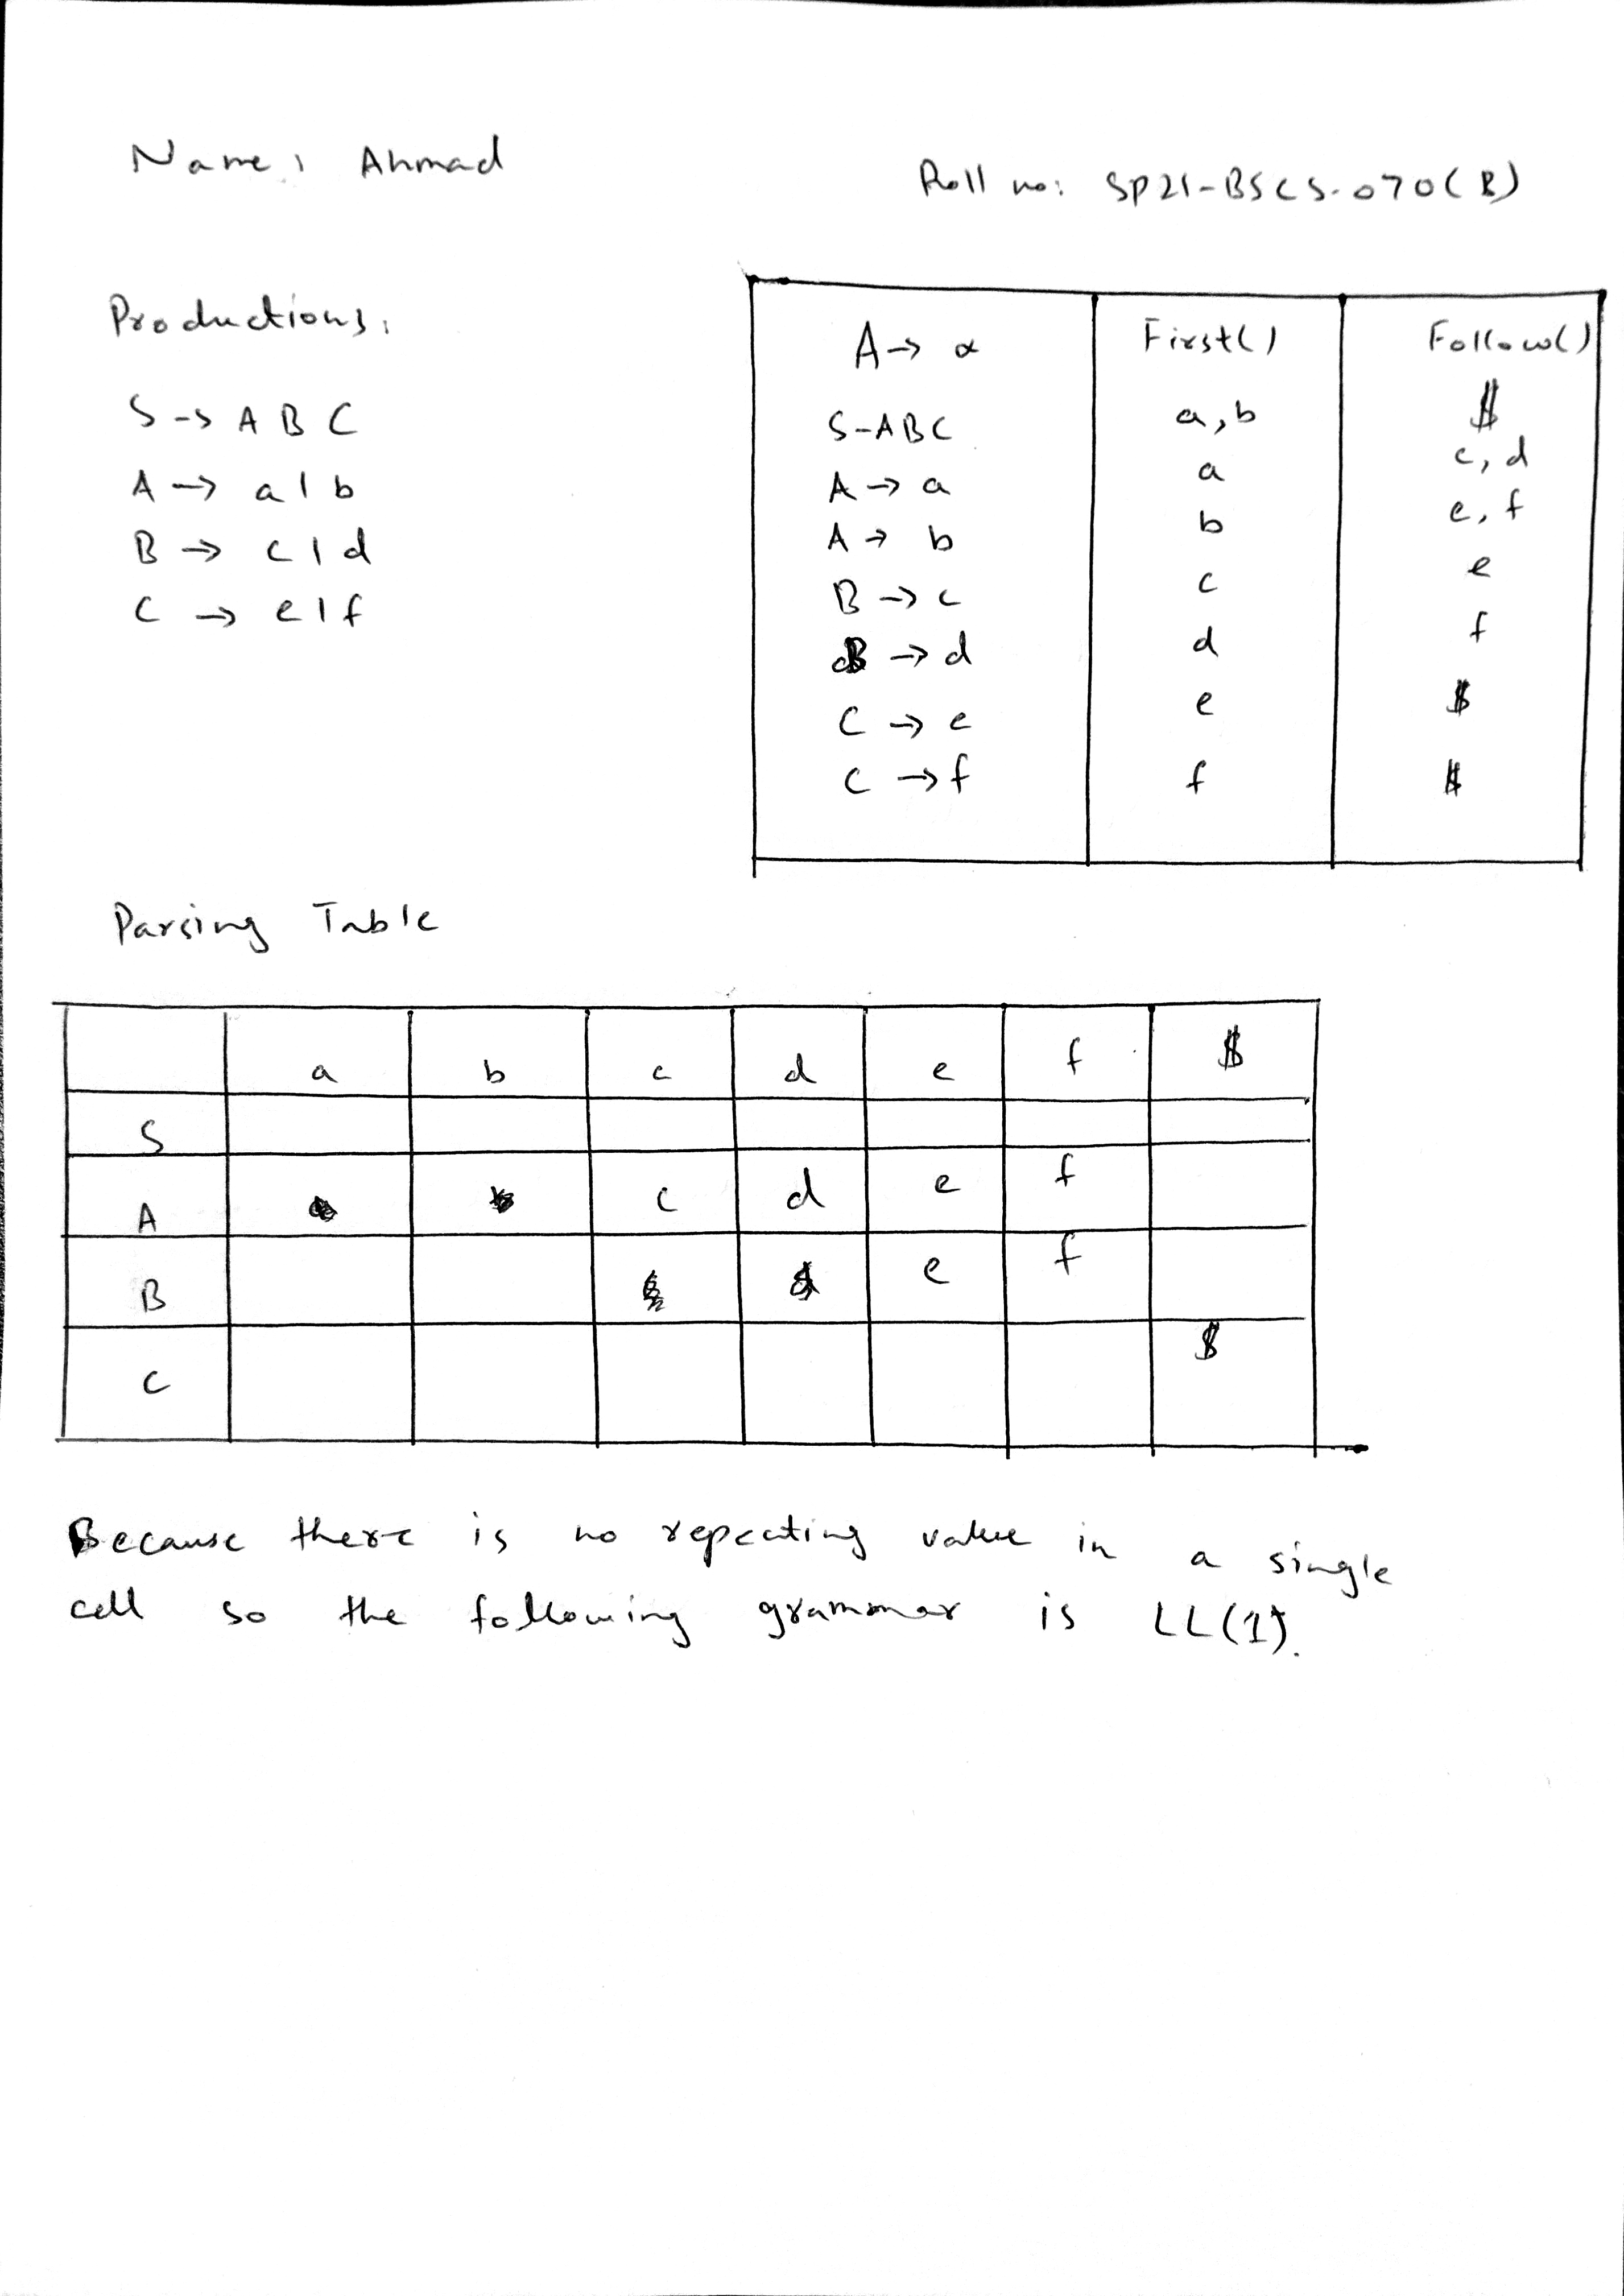 Name: Ahmad
Roll no: SP21-BSCS-070(B)
Productions:
S -> A B C
A -> a | b
B -> c | d
C -> e | f
A -> α First() Follow()
S-ABC a,b $
A -> a a c, d
A -> b b e, f
B -> c c e
B -> d d f
C -> e e $
C -> f f $
Parsing Table
a b c d e f $
S
A c d e f
B e f
C $
Because there is no repeating value in a single
cell so the following grammar is LL(1).